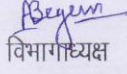 ABegum
विभागाध्यक्ष